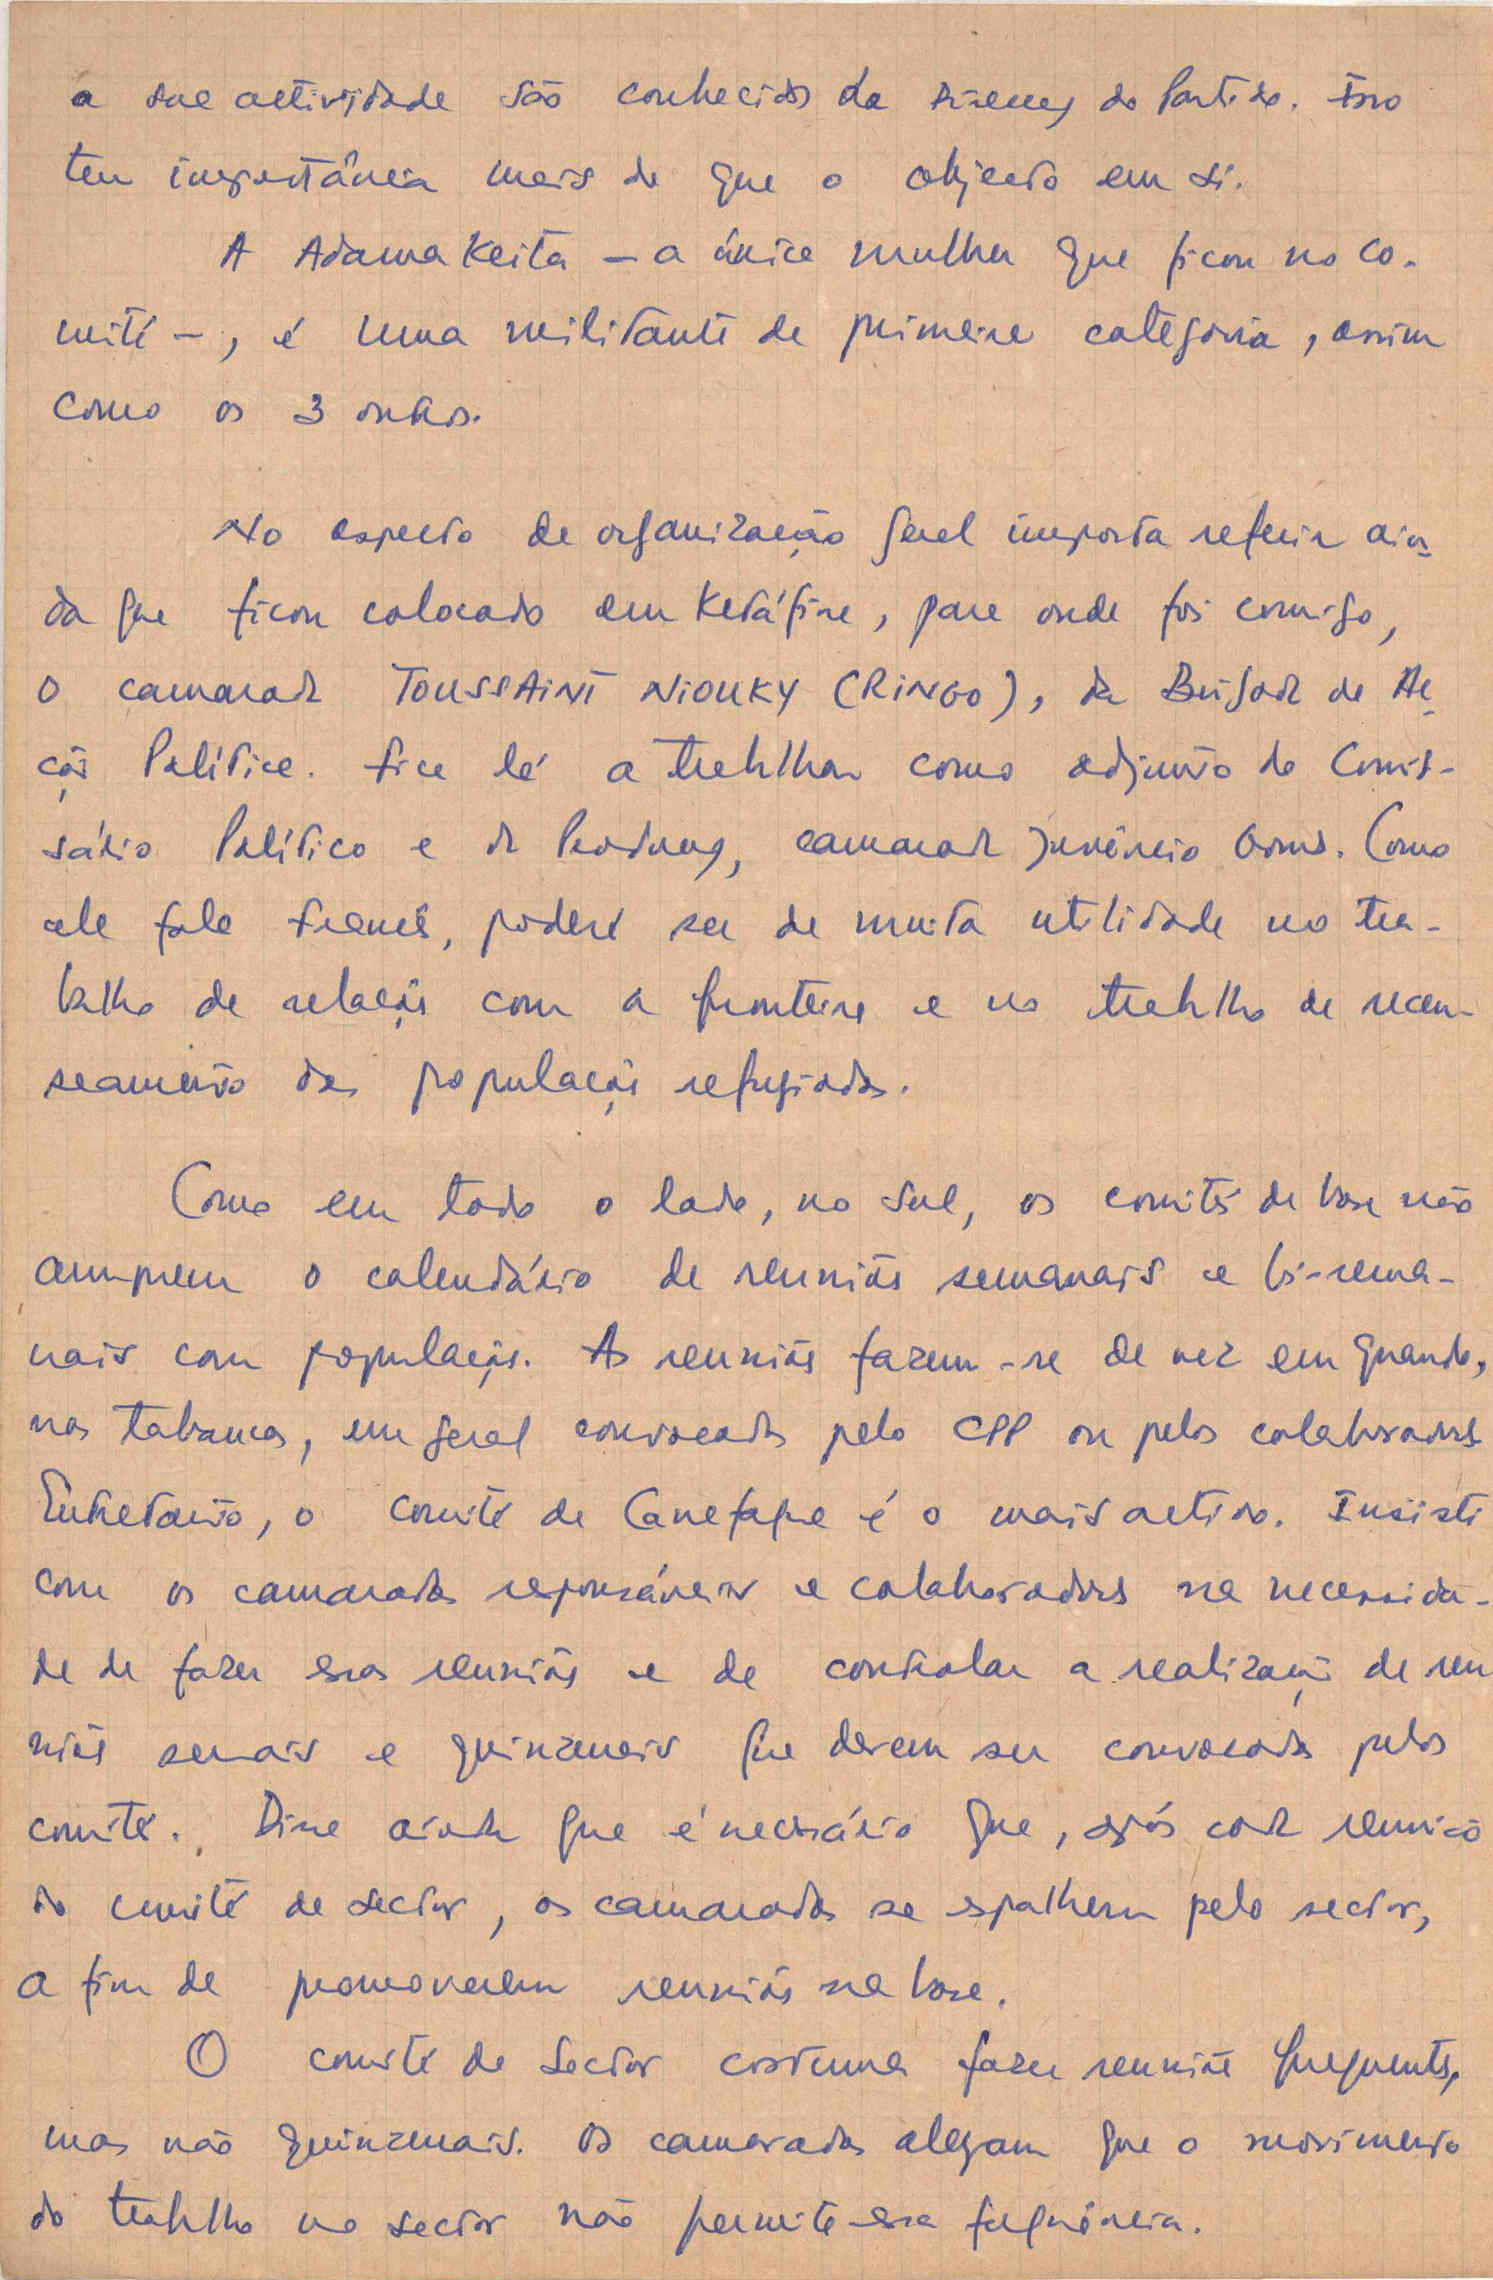 a sua actividade são conhecidos da Direcção do Partido. Isso
tem importância mais do que o objecto em si.
A Adama Keita – a única mulher que ficou no co-
mité –, é uma militante de primeira categoria, assim
como os 3 outros.
No aspecto de organização geral importa referir ain-
da que ficou colocado em Ketáfine, para onde foi comigo,
o camarada TOUSSAINT NIOUKY (RINGO), da Brigada de Ac-
ção Política. Fica lá a trabalhar como adjunto do Comis-
sário Político e da Produção, camarada Juvêncio Gomes. Como
ele fala francês, poderá ser de muita utilidade no tra-
balho de relação com a fronteira e no trabalho de recen-
seamento das população refugiadas.
Como em todo o lado, no Sul, os comités de base não
cumprem o calendário de reuniões semanais e bi-sema-
nais com população. As reuniões fazem-se de vez em quando,
nas tabancas, em geral convocadas pelo CPP ou pelos colaboradores
Entretanto, o comité de Canefaque é o mais activo. Insisti
com os camaradas responsáveis e colaboradores na necessida-
de de fazer essas reuniões e de controlar a realização de reu
niões semais e quinzenais que devem ser convocadas pelos
comité. Disse ainda que é necessário que, após cada reunião
do comité de sector, os camaradas se espalhem pelo sector,
a fim de promoverem reuniões na base.
O comité de Sector costuma fazer reuniões frequentes,
mas não quinzenais. Os camaradas alegam que o movimento
do trabalho no sector não permite essa frequência.